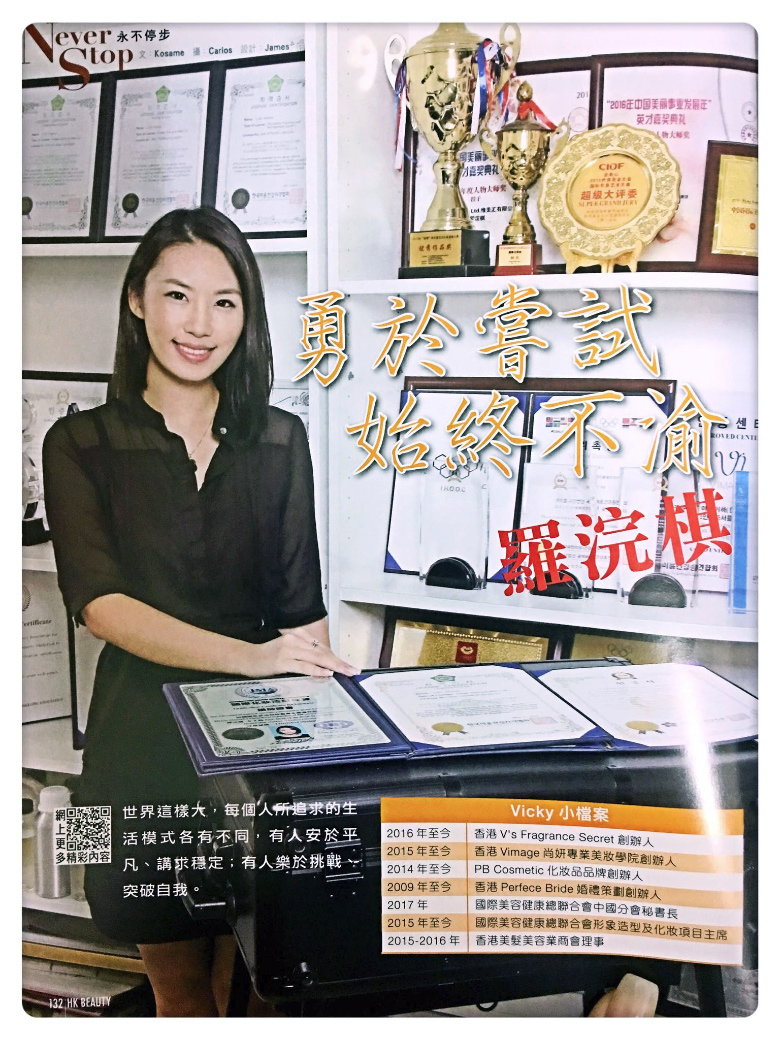 Never Stop 永不停步
文：Kosame 攝：Carlos 設計：James
"2016年中国美丽事业发展年"
英才嘉奖典礼
CIOF
超级大评委
SUPER GRAND JURY
勇於嘗試
始終不渝
羅浣棋
網上更多精彩內容
世界這樣大，每個人所追求的生
活模式各有不同，有人安於平
凡、講求穩定；有人樂於挑戰、
突破自我。
Vicky 小檔案
2016 年至今 香港 V's Fragrance Secret 創辦人
2015 年至今 香港 Vimage 尚妍專業美妝學院創辦人
2014 年至今 PB Cosmetic 化妝品品牌創辦人
2009 年至今 香港 Perfece Bride 婚禮策劃創辦人
2017 年 國際美容健康總聯合會中國分會秘書長
2015 年至今 國際美容健康總聯合會形象造型及化妝項目主席
2015-2016 年 香港美髮美容業商會理事
132 HK BEAUTY